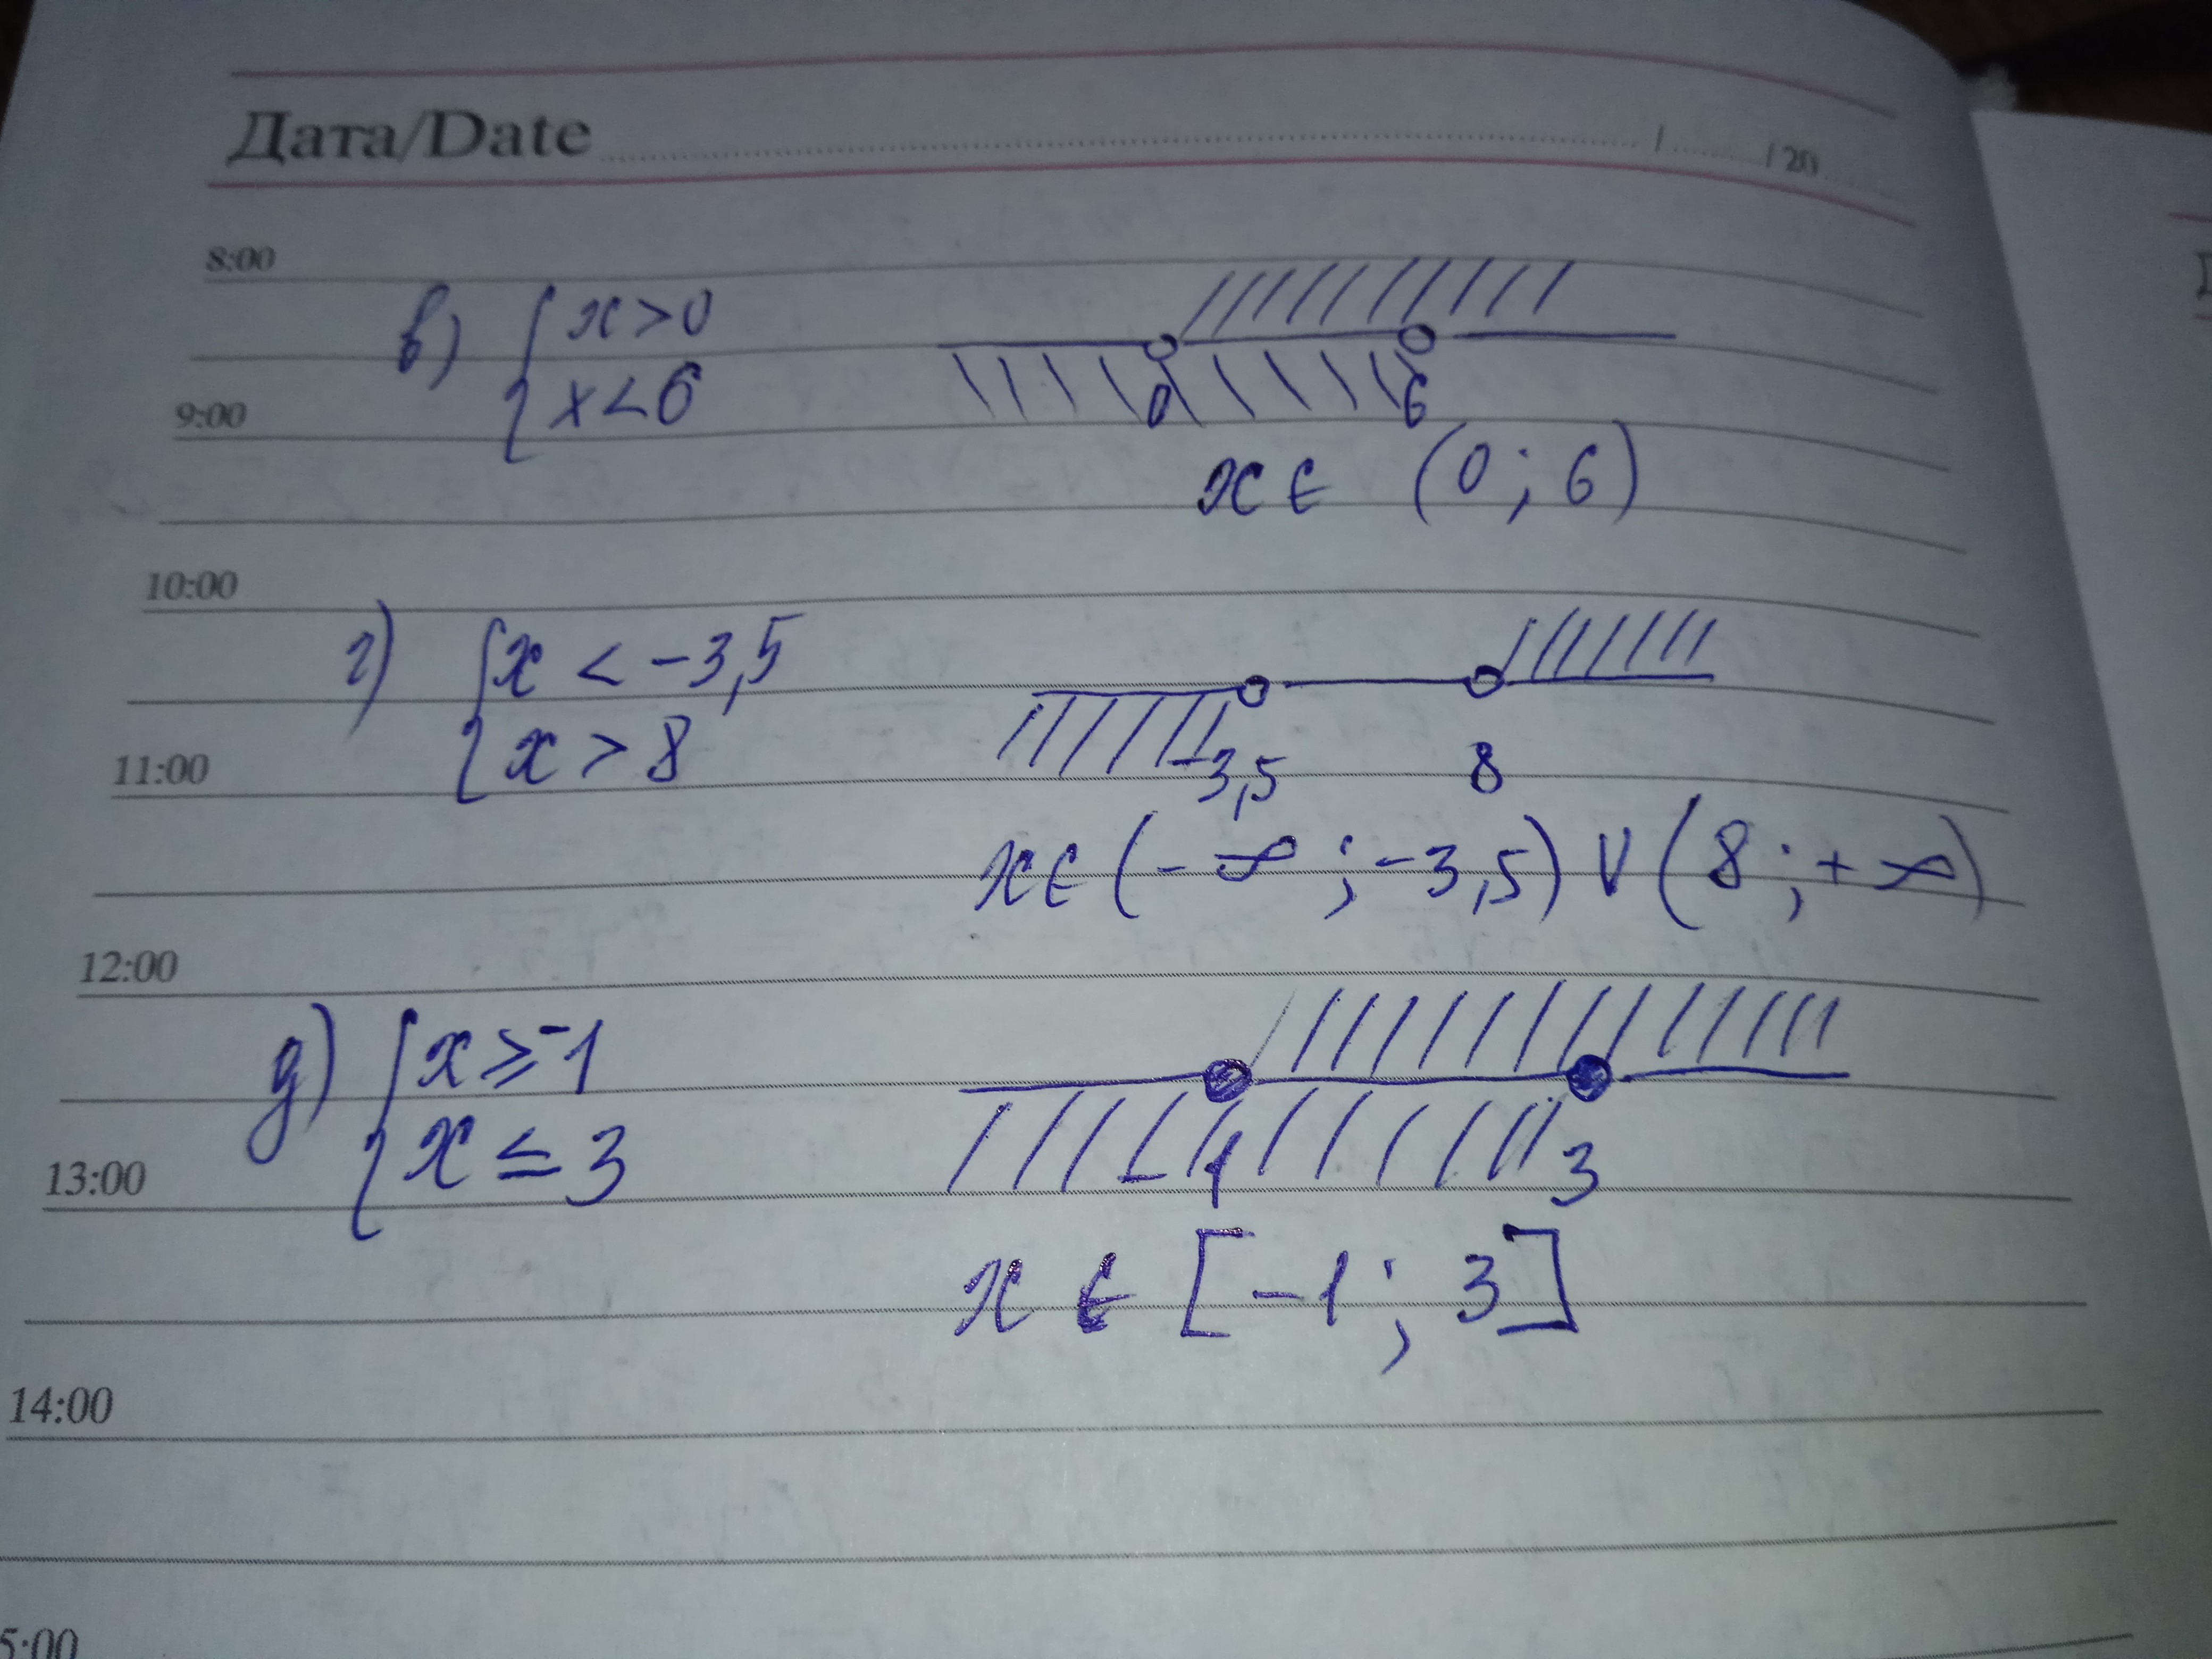 Дата/Date / /20
8:00
в) { x>0
x<6
0 6
9:00
x ∈ (0; 6)
10:00
г) { x < -3,5
x > 8
-3,5 8
11:00
x ∈ (-∞; -3,5) V (8; +∞)
12:00
д) { x ≥ -1
x ≤ 3
-1 3
13:00
x ∈ [-1; 3]
14:00
5:00